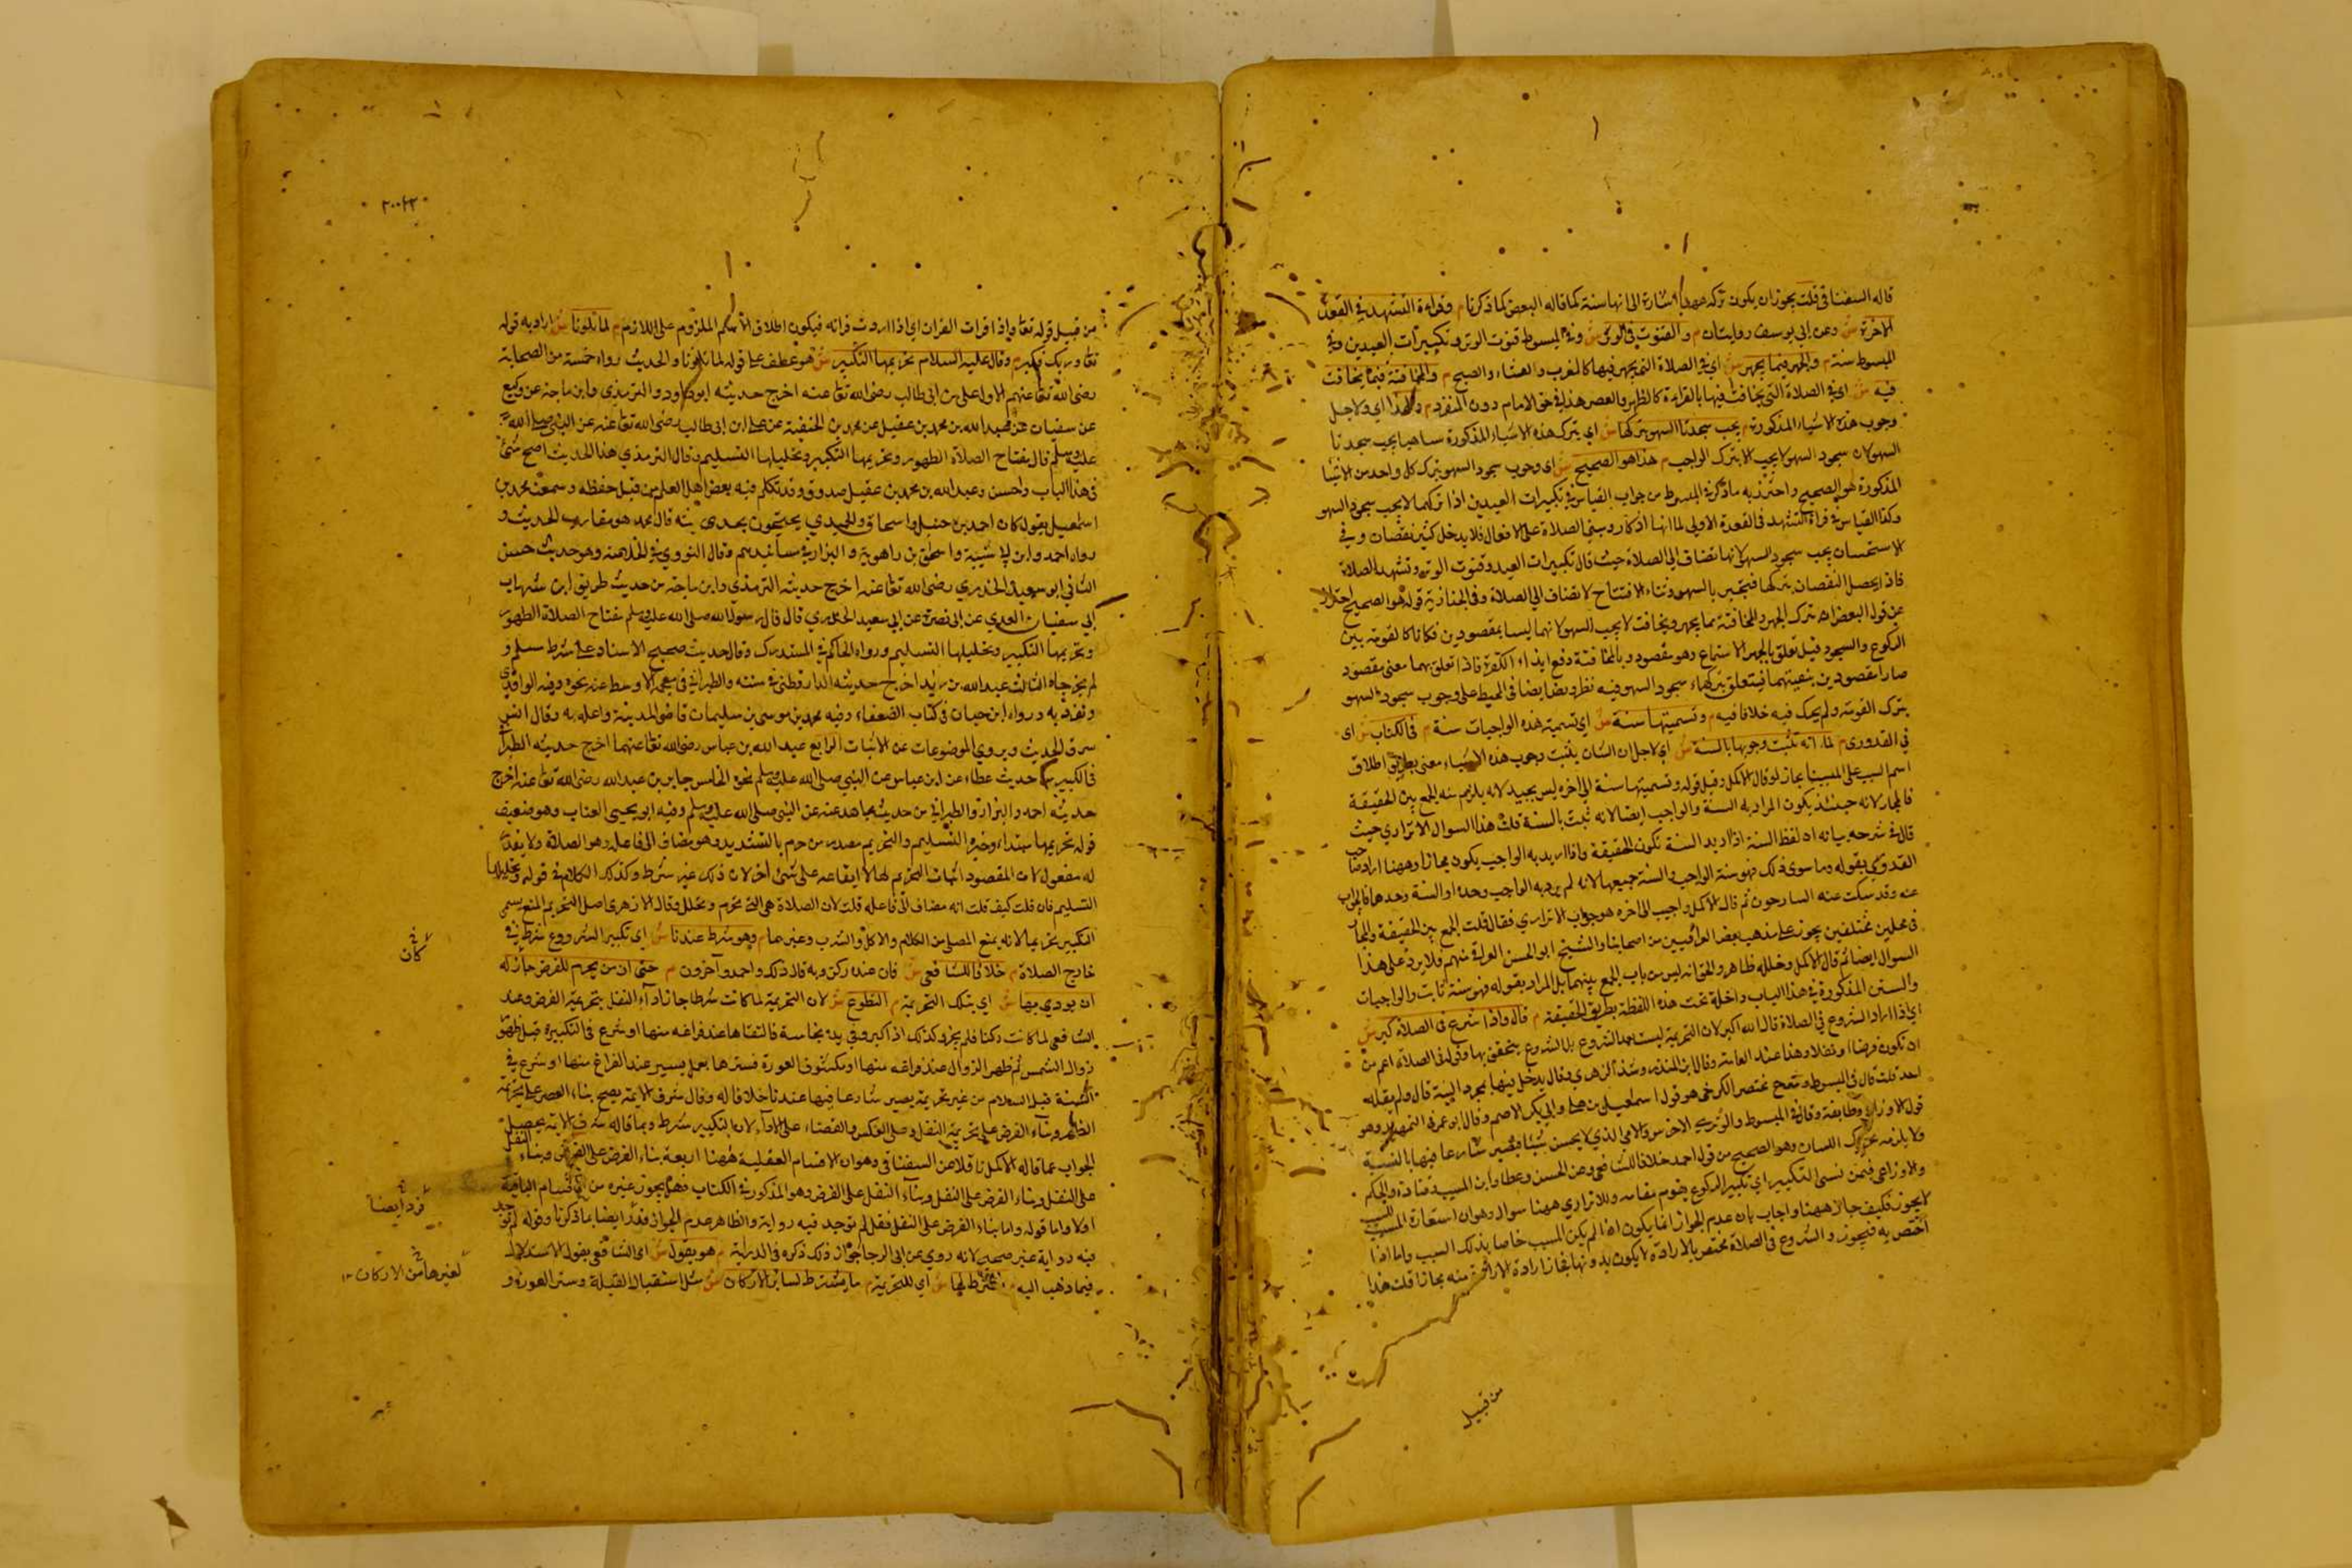 قاله السغناقي قلت يجوز ان يكون تركه اشارة الى انها سنة كما قاله البعض كما ذكرنا م وقراءة التشهد في القعدة
الاخرة ش وعن ابي يوسف روايتان م والقنوت في الوتر ش وفي المبسوط قنوت الوتر وتكبيرات العيدين وفي
المبسوط سنة م والجهر فيما يجهر ش اي في الصلاة التي يجهر فيها كالمغرب والعشاء والصبح م والمخافتة فيما يخافت
فيه ش اي في الصلاة التي يخافت فيها بالقراءة كالظهر والعصر هذا في حق الامام دون المنفرد م ولهذا اي ولاجل
وجوب هذه الاشياء المذكورة م يجب سجدتا السهو بتركها ش اي بترك هذه الاشياء المذكورة ساهيا يجب سجدتا
السهو لان سجود السهو لا يجب الا بترك الواجب م هذا هو الصحيح ش اي وجوب سجود السهو بترك كل واحد من الاشيا
المذكورة هو الصحيح واحترز به ما ذكر في المبسوط من جواب القياس في تكبيرات العيدين اذا تركها لا يجب سجود السهو
وكذا القياس في قراءة التشهد في القعدة الاولى لما انها اذكار ومبنى الصلاة على الافعال فلا يدخل كثير نقصان وفي
الاستحسان يجب سجود السهو لانها تضاف الى الصلاة حيث قال تكبيرات العيد وقنوت الوتر وتشهد الصلاة
فاذا يحصل النقصان بتركها فيجبر بالسهو وثناء الافتتاح لا تضاف الى الصلاة وفي الجنازية قوله هو الصحيح احتراز
عن قول البعض ان بترك الجهر والمخافتة بما يجهر ويخافت لا يجب السهو لانهما ليسا بمقصودين فكانا كالقومة بين
الركوع والسجود قيل تعلق بالجهر الاستماع وهو مقصود وبالمخافتة دفع ايذاء الكفرة فاذا تعلق بهما معنى مقصود
صارا مقصودين بتبعيتهما فيتعلق بتركهما سجود السهو فيه نظر ونص ايضا في المحيط على وجوب سجود السهو
بترك القومة ولم يحك فيه خلافا فيه م وتسميتها سنة ش اي تسمية هذه الواجبات سنة م في الكتاب ش اي
في القدوري م لما انه ثبت وجوبها بالسنة ش اي لاجل ان الشان يثبت وجوب هذه الاشياء معنى بطريق اطلاق
اسم السبب على المسبب مجاز لو قال الاكمل وقيل قوله وتسميتها سنة الى اخره ليس بجيد لانه يلزم منه الجمع بين الحقيقة
والمجاز لانه حينئذ يكون المراد به السنة والواجب ايضا لانه ثبت بالسنة قلت هذا السوال الاترازي حيث
قال في شرحه بيانه ان لفظ السنة اذا اريد السنة تكون الحقيقة واذا اريد به الواجب يكون مجازا وههنا اراد صاحب
القدوري بقوله وما سوى ذلك فهو سنة الواجب والسنة جميعها لانه لم يرد به الواجب وحده او السنة وحدها فالجواب
عنه وقد سكت عنه الشارحون ثم قال الاكمل واجيب الى اخره هو جواب الاترازي فقال قلت الجمع بين الحقيقة والمجاز
في محلين مختلفين يجوز على مذهب بعض العراقيين من اصحابنا والشيخ ابو الحسن العراقي منهم فلا يرد على هذا
السوال ايضا ثم قال الاكمل وخلله ظاهر والحق انه ليس من باب الجمع بينهما بل المراد بقوله فهو سنة ثابت والواجبات
والسنن المذكورة في هذا الباب داخلة تحت هذه اللفظة بطريق الحقيقة م قال واذا شرع في الصلاة كبر ش
اي اذا اراد الشروع في الصلاة قال الله اكبر لان التحريمة ليست بعد الشروع بل الشروع يتحقق بها وقوله في الصلاة اعم من
ان تكون فرضا او نفلا وهذا عند العامة وقال ابن المنذر وشذ الزهري وقال يدخل فيها بمجرد النية قال ولم يقله
احد قلت قال في المبسوط و مختصر الكرخي هو قول اسمعيل بن علية وابي بكر الاصم وقال ابو عمر في التمهيد وهو
قول الاوزاعي وطايفة وقال في المبسوط والوبري الاخرس والامي الذي لا يحسن شيئا يصير شارعا فيها بالنية
ولا يلزمه تحريك اللسان وهو الصحيح من قول احمد خلافا للشافعي وعن الحسن وعطا وابن المسيب وقتادة والحكم
والاوزاعي فيمن نسي التكبير اي تكبير الركوع يقوم مقامه وللاترازي ههنا سوال وهو ان استعارة المسبب للسبب
لا يجوز فكيف جاز ههنا واجاب بان عدم الجواز انما يكون اذا لم يكن المسبب خاصا بذلك السبب واما اذا
اختص به فيجوز والشروع في الصلاة مختص بالارادة لا يكون بدونها فجاز ارادة الارادة منه مجازا قلت هذا
من قبيل
من قبيل قوله تعا واذا قرات القران اي اذا اردت قرانه فيكون اطلاق الاسم الملزوم على اللازم م لما تلونا ش اراد به قوله
تعا وربك فكبر م وقال عليه السلام تحريمها التكبير ش هو عطف على قوله لما تلونا والحديث رواه خمسة من الصحابة
رضي الله تعا عنهم الاول علي بن ابي طالب رضي الله تعا عنه اخرج حديثه ابو داود والترمذي وابن ماجه عن وكيع
عن سفيان عن عبد الله بن محمد بن عقيل عن محمد بن الحنفية عن علي ابن ابي طالب رضي الله تعا عنه عن النبي صلى الله
عليه وسلم قال مفتاح الصلاة الطهور وتحريمها التكبير وتحليلها التسليم وقال الترمذي هذا الحديث اصح شئ
في هذا الباب واحسن وعبد الله بن محمد بن عقيل صدوق وقد تكلم فيه بعض اهل العلم من قبل حفظه وسمعت محمد بن
اسمعيل يقول كان احمد بن حنبل واسحاق والحميدي يحتجون بحديثه قال محمد هو مقارب الحديث و
رواه احمد وابن ابي شيبة واسحق بن راهويه والبزار في مسانيدهم وقال النووي في الخلاصة وهو حديث حسن
الثاني ابو سعيد الخدري رضي الله تعا عنه اخرج حديثه الترمذي وابن ماجه من حديث طريق ابن شهاب
ابي سفيان العدي عن ابي نضرة عن ابي سعيد الخدري قال قال رسول الله صلى الله عليه وسلم مفتاح الصلاة الطهور
وتحريمها التكبير وتحليلها التسليم ورواه الحاكم في المستدرك وقال حديث صحيح الاسناد على شرط مسلم و
لم يخرجاه الثالث عبد الله بن زيد اخرج حديثه الدارقطني في سننه والطبراني في معجم الاوسط عنه نحوه وفيه الواقدي
وتفرد به ورواه ابن حبان في كتاب الضعفاء وفيه محمد بن موسى بن سليمان قاضي المدينة واعله به وقال انس
سرق الحديث ويروي الموضوعات عن الاثبات الرابع عبد الله بن عباس رضي الله تعا عنهما اخرج حديثه الطبرا
في الكبير من حديث عطاء عن ابن عباس عن النبي صلى الله عليه وسلم نحوه الخامس جابر بن عبد الله رضي الله تعا عنه اخرج
حديثه احمد والبزار والطبراني من حديث مجاهد عنه عن النبي صلى الله عليه وسلم وفيه ابو يحيى القتات وهو ضعيف
قوله تحريمها مبتداء وخبره التسليم والتحريم مصدر من حرم بالتشديد وهو مضاف الى فاعله وهو الصلاة ولا يقدر
له مفعول لان المقصود اثبات التحريم لها لا ايقاعه على شئ اخر لان ذلك غير شرط وكذلك الكلام في قوله وتحليلها
التسليم فان قلت كيف قلت انه مضاف الى فاعله قلت لان الصلاة هي التي تحرم وتحلل وقال الازهري اصل التحريم المنع يسمى
التكبير تحريما لانه يمنع المصلي من الكلام والاكل والشرب وغيرها م وهو شرط عندنا ش اي تكبير الشروع شرط في
خارج الصلاة م خلافا للشافعي ش فان عنده ركن وبه قال ذلك واحمد وآخرون م حتى ان من يحرم للفرض جاز له
ان يودي بها ش اي بتلك التحريمة م التطوع ش لان التحريمة لما كانت شرطا جاز اداء النفل بتحريمة الفرض وعند
الشافعي لما كانت ركنا فلم يجز وكذلك اذا كبر وفي يده نجاسة فالقاها عند فراغه منها او شرع في التكبيرة قبل ظهور
زوال الشمس ثم ظهر الزوال عند فراغه منها او مكشوف العورة فسترها بعمل يسير عند الفراغ منها او شرع في
الثانية قبل السلام من غير تحريمة يصير شارعا فيها عندنا خلافا له وقال شرف الايمة يصح بناء العصر على تحريمة
الظهر وبناء الفرض على تحريمة النفل وعلى العكس والقضاء على الاداء لان التكبير شرط وبما قاله شرف الايمة يحصل
الجواب عما قاله الاكمل ناقلا عن السغناقي وهو ان الاقسام العقلية ههنا اربعة بناء الفرض على الفرض وبناء النفل
على النفل وبناء الفرض على النفل وبناء النفل على الفرض وهو المذكور في الكتاب وهل يجوز غيره من الاقسام الباقية
اولا واما قوله واما بناء الفرض على النفل فقل لم توجد فيه رواية والظاهر عدم الجواز فرد ايضا بما ذكرنا وقوله لم توجد
فيه رواية غير صحيح لانه روي عن ابي الرجا جواز ذلك ذكره في الدراية م هو يقول ش اي الشافعي يقول الاستدلال
فيما ذهب اليه م يشترط لها ش اي للتحريمة م ما يشترط لسائر الاركان ش مثل استقبال القبلة وستر العورة و
لا في
كان
فرد ايضا
لغيرها من الاركان ١٢